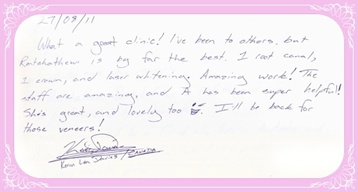 27/08/11
What a great clinic! I've been to others, but
is by far the best. 1 root canal,
1 crown, and laser whitening. Amazing work! The
staff are amazing, and A has been super helpful!
She's great, and lovely too I'll be back for
those veneers!